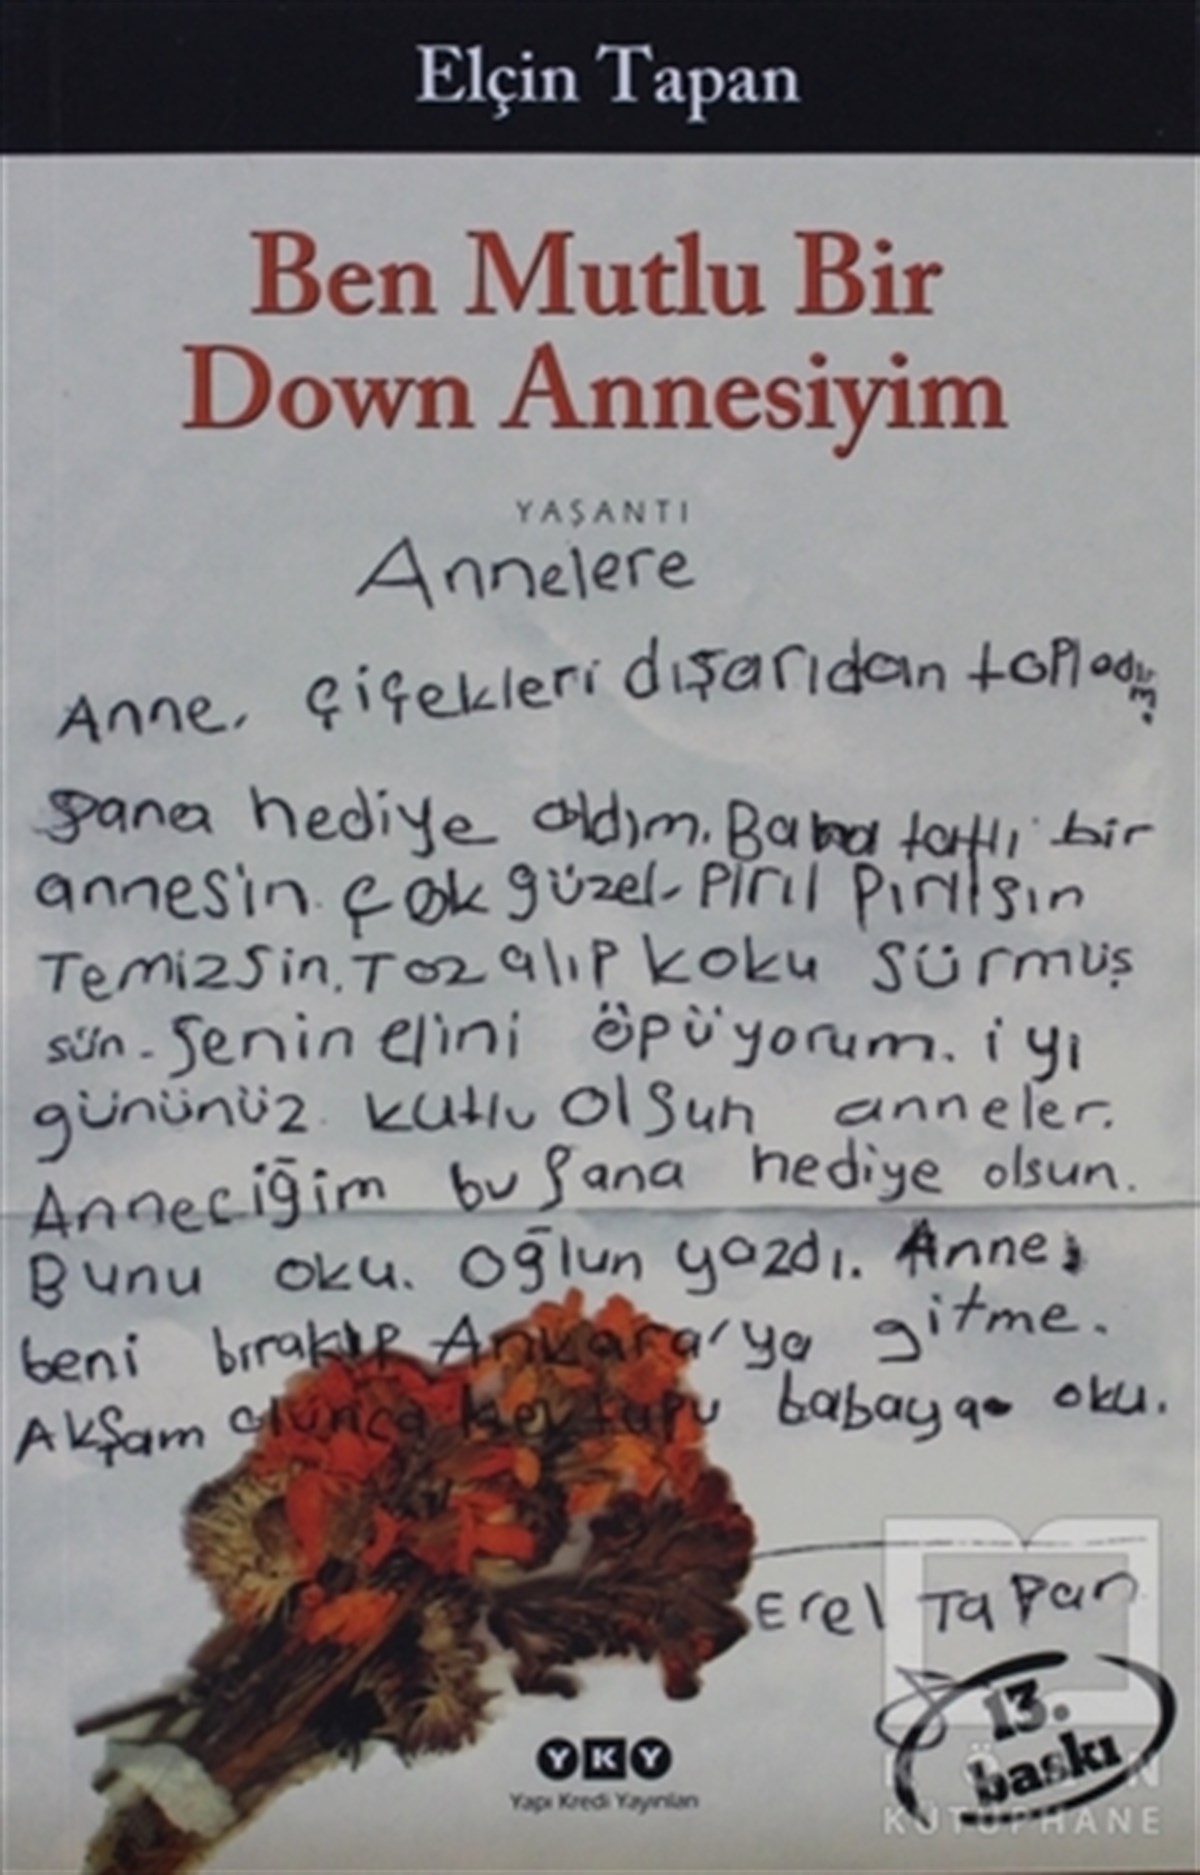 Elçin Tapan
Ben Mutlu Bir
Down Annesiyim
YAŞANTI
Annelere
Anne, çiçekleri dışarıdan topladım.
Şana hediye aldım. Bana tatlı bir
annesin. Çok güzel, pırıl pırılsın
Temizsin. Toz alıp koku sürmüş
sün. Şenin elini öpüyorum. iyi
gününüz kutlu olsun anneler.
Anneciğim bu şana hediye olsun.
Bunu oku. Oğlun yazdı. Anne,
beni bırakıp Ankara'ya gitme.
Akşam olunca mektupu babaya oku.
Erel Tapan
13.
baskı
YKY
Yapı Kredi Yayınları
KÜTÜPHANE